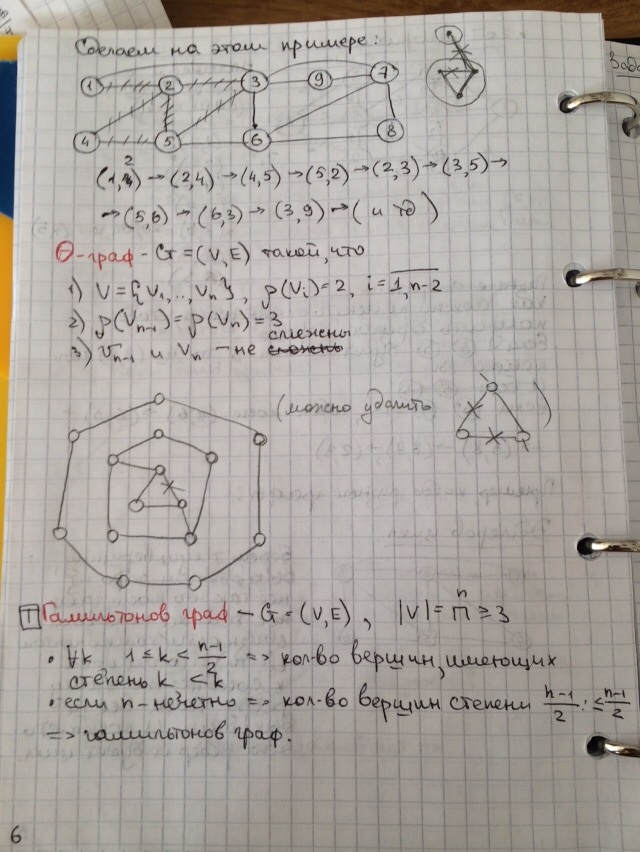 Сделаем на этом примере:
1 2 3 9 7
4 5 6 8
(1,2) → (2,4) → (4,5) → (5,2) → (2,3) → (3,5) →
→ (5,6) → (6,3) → (3,9) → ( и тд )
Θ-граф - G=(V,E) такой, что
1) V={V₁,..,Vₙ}, ρ(Vᵢ)=2, i=1,n-2
2) ρ(Vₙ₋₁)=ρ(Vₙ)=3
3) Vₙ₋₁ и Vₙ - не смежны
(можно удалить )
T Гамильтонов граф - G=(V,E), |V|=n ≥ 3
• ∀k 1 ≤ k < (n-1)/2 => кол-во вершин, имеющих
степень k < k
• если n - нечётно => кол-во вершин степени (n-1)/2 : ≤ (n-1)/2
=> гамильтонов граф.
6